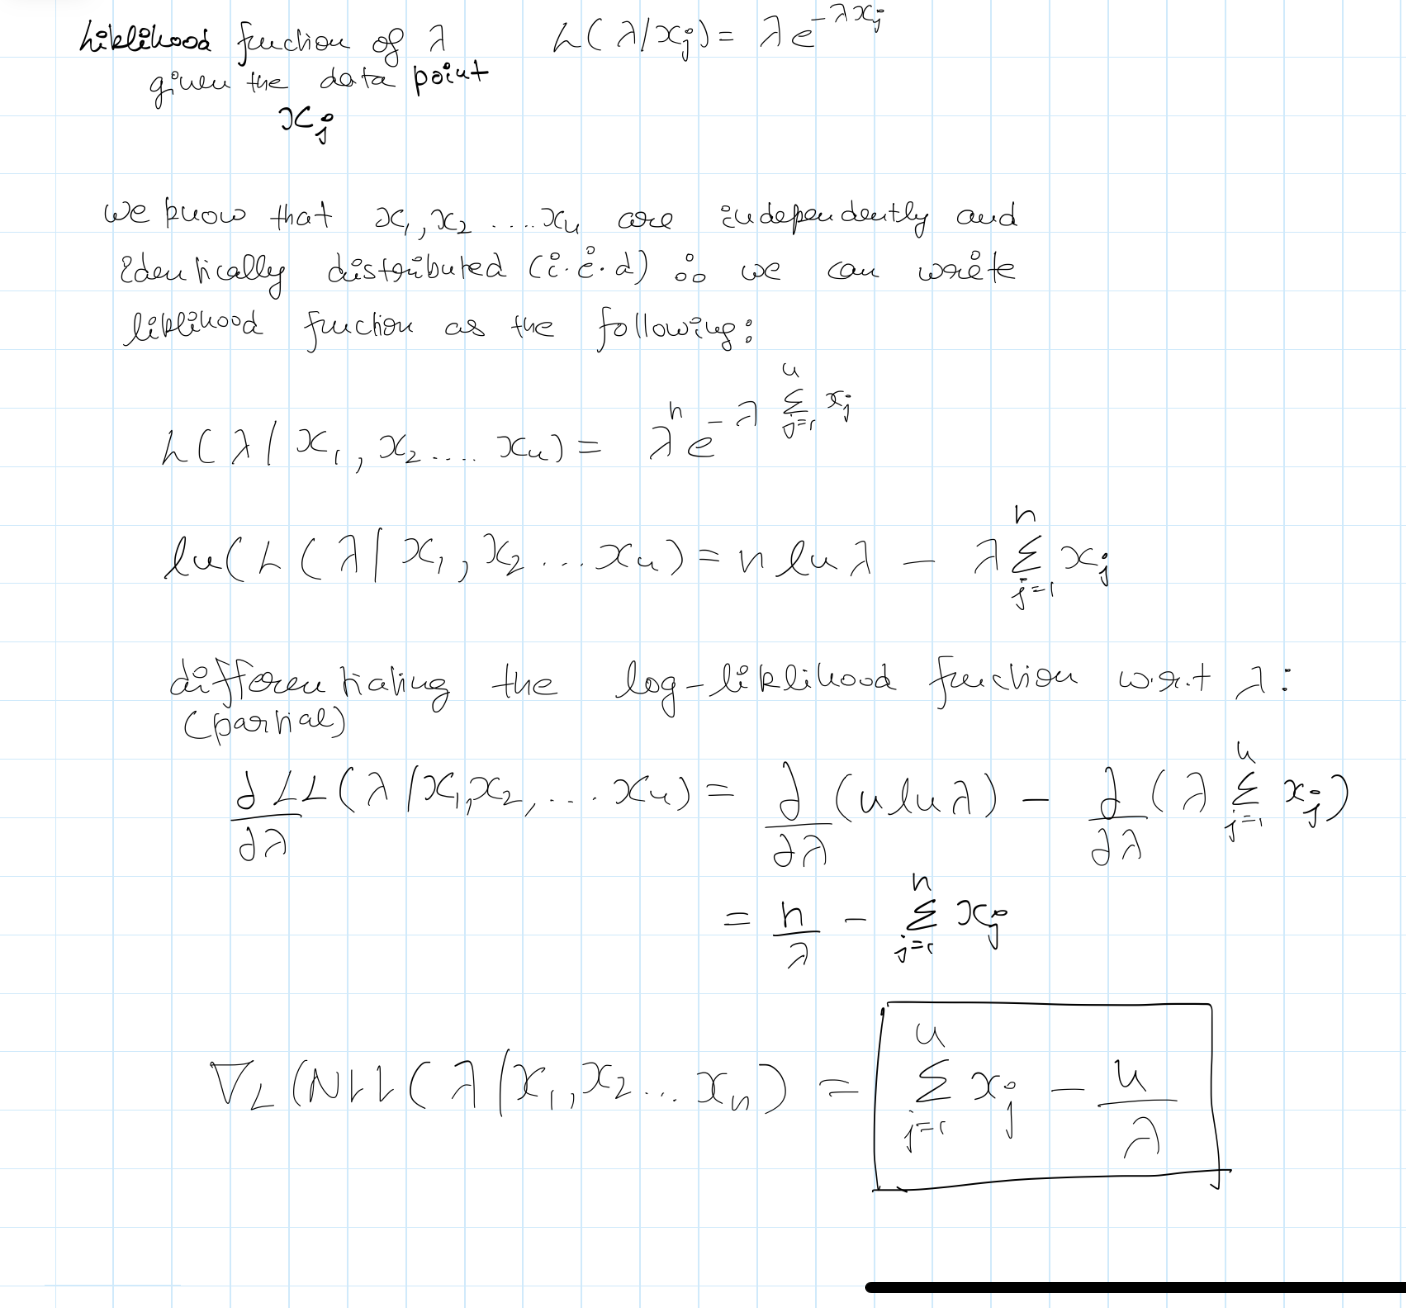 Liklihood function of λ L(λ/xⱼ) = λe^{-λxⱼ}
given the data point
xⱼ
we know that x₁, x₂ .... xₙ are independently and
Identically distributed (i.i.d) ∴ we can write
liklihood function as the following:
L(λ/x₁, x₂.... xₙ) = λⁿe^{-λ∑_{j=1}^{n} xⱼ}
ln(L(λ|x₁, x₂...xₙ) = n ln λ - λ∑_{j=1}^{n} xⱼ
differentiating the log-liklihood function w.r.t λ:
(partial)
∂LL/∂λ (λ/x₁,x₂,...xₙ) = ∂/∂λ (n ln λ) - ∂/∂λ (λ∑_{j=1}^{n} xⱼ)
= n/λ - ∑_{j=1}^{n} xⱼ
∇_L (NLL(λ/x₁,x₂... xₙ) = ∑_{j=1}^{n} xⱼ - n/λ